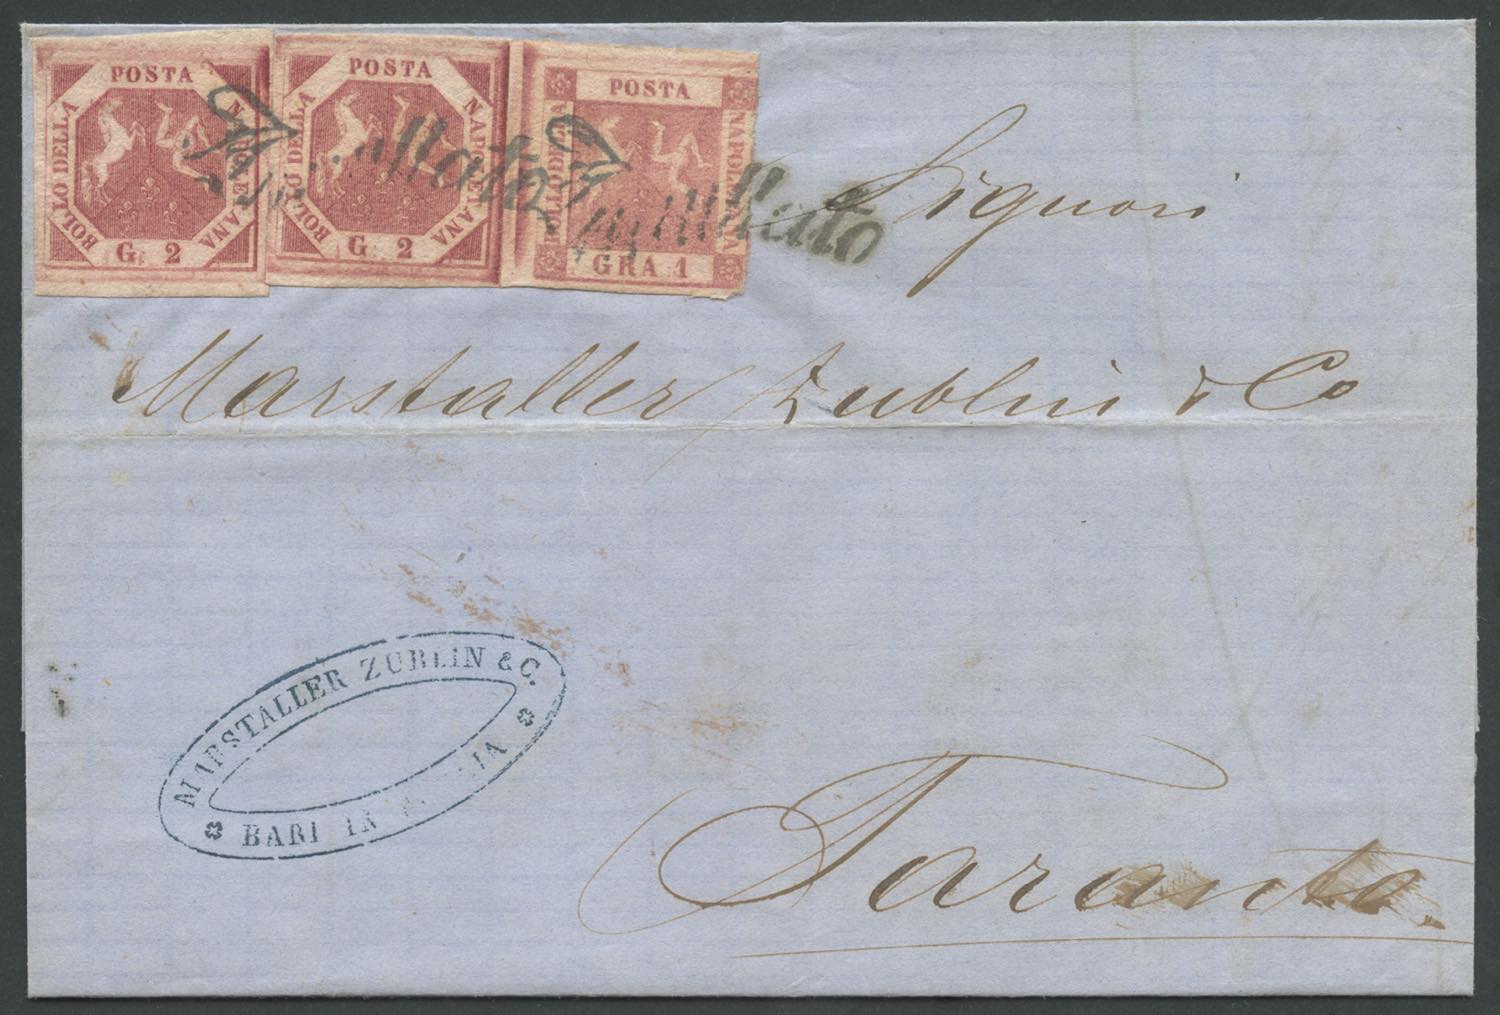 POSTA
BOLLO DELLA
NAPOLETANA
G. 2
POSTA
BOLLO DELLA
NAPOLETANA
G. 2
POSTA
BOLLO DELLA
NAPOLETANA
GRA 1
Annullato
Annullato
Signori
Marstaller Zublin & Co
MARSTALLER ZUBLIN & C.
BARI IN
Taranto.